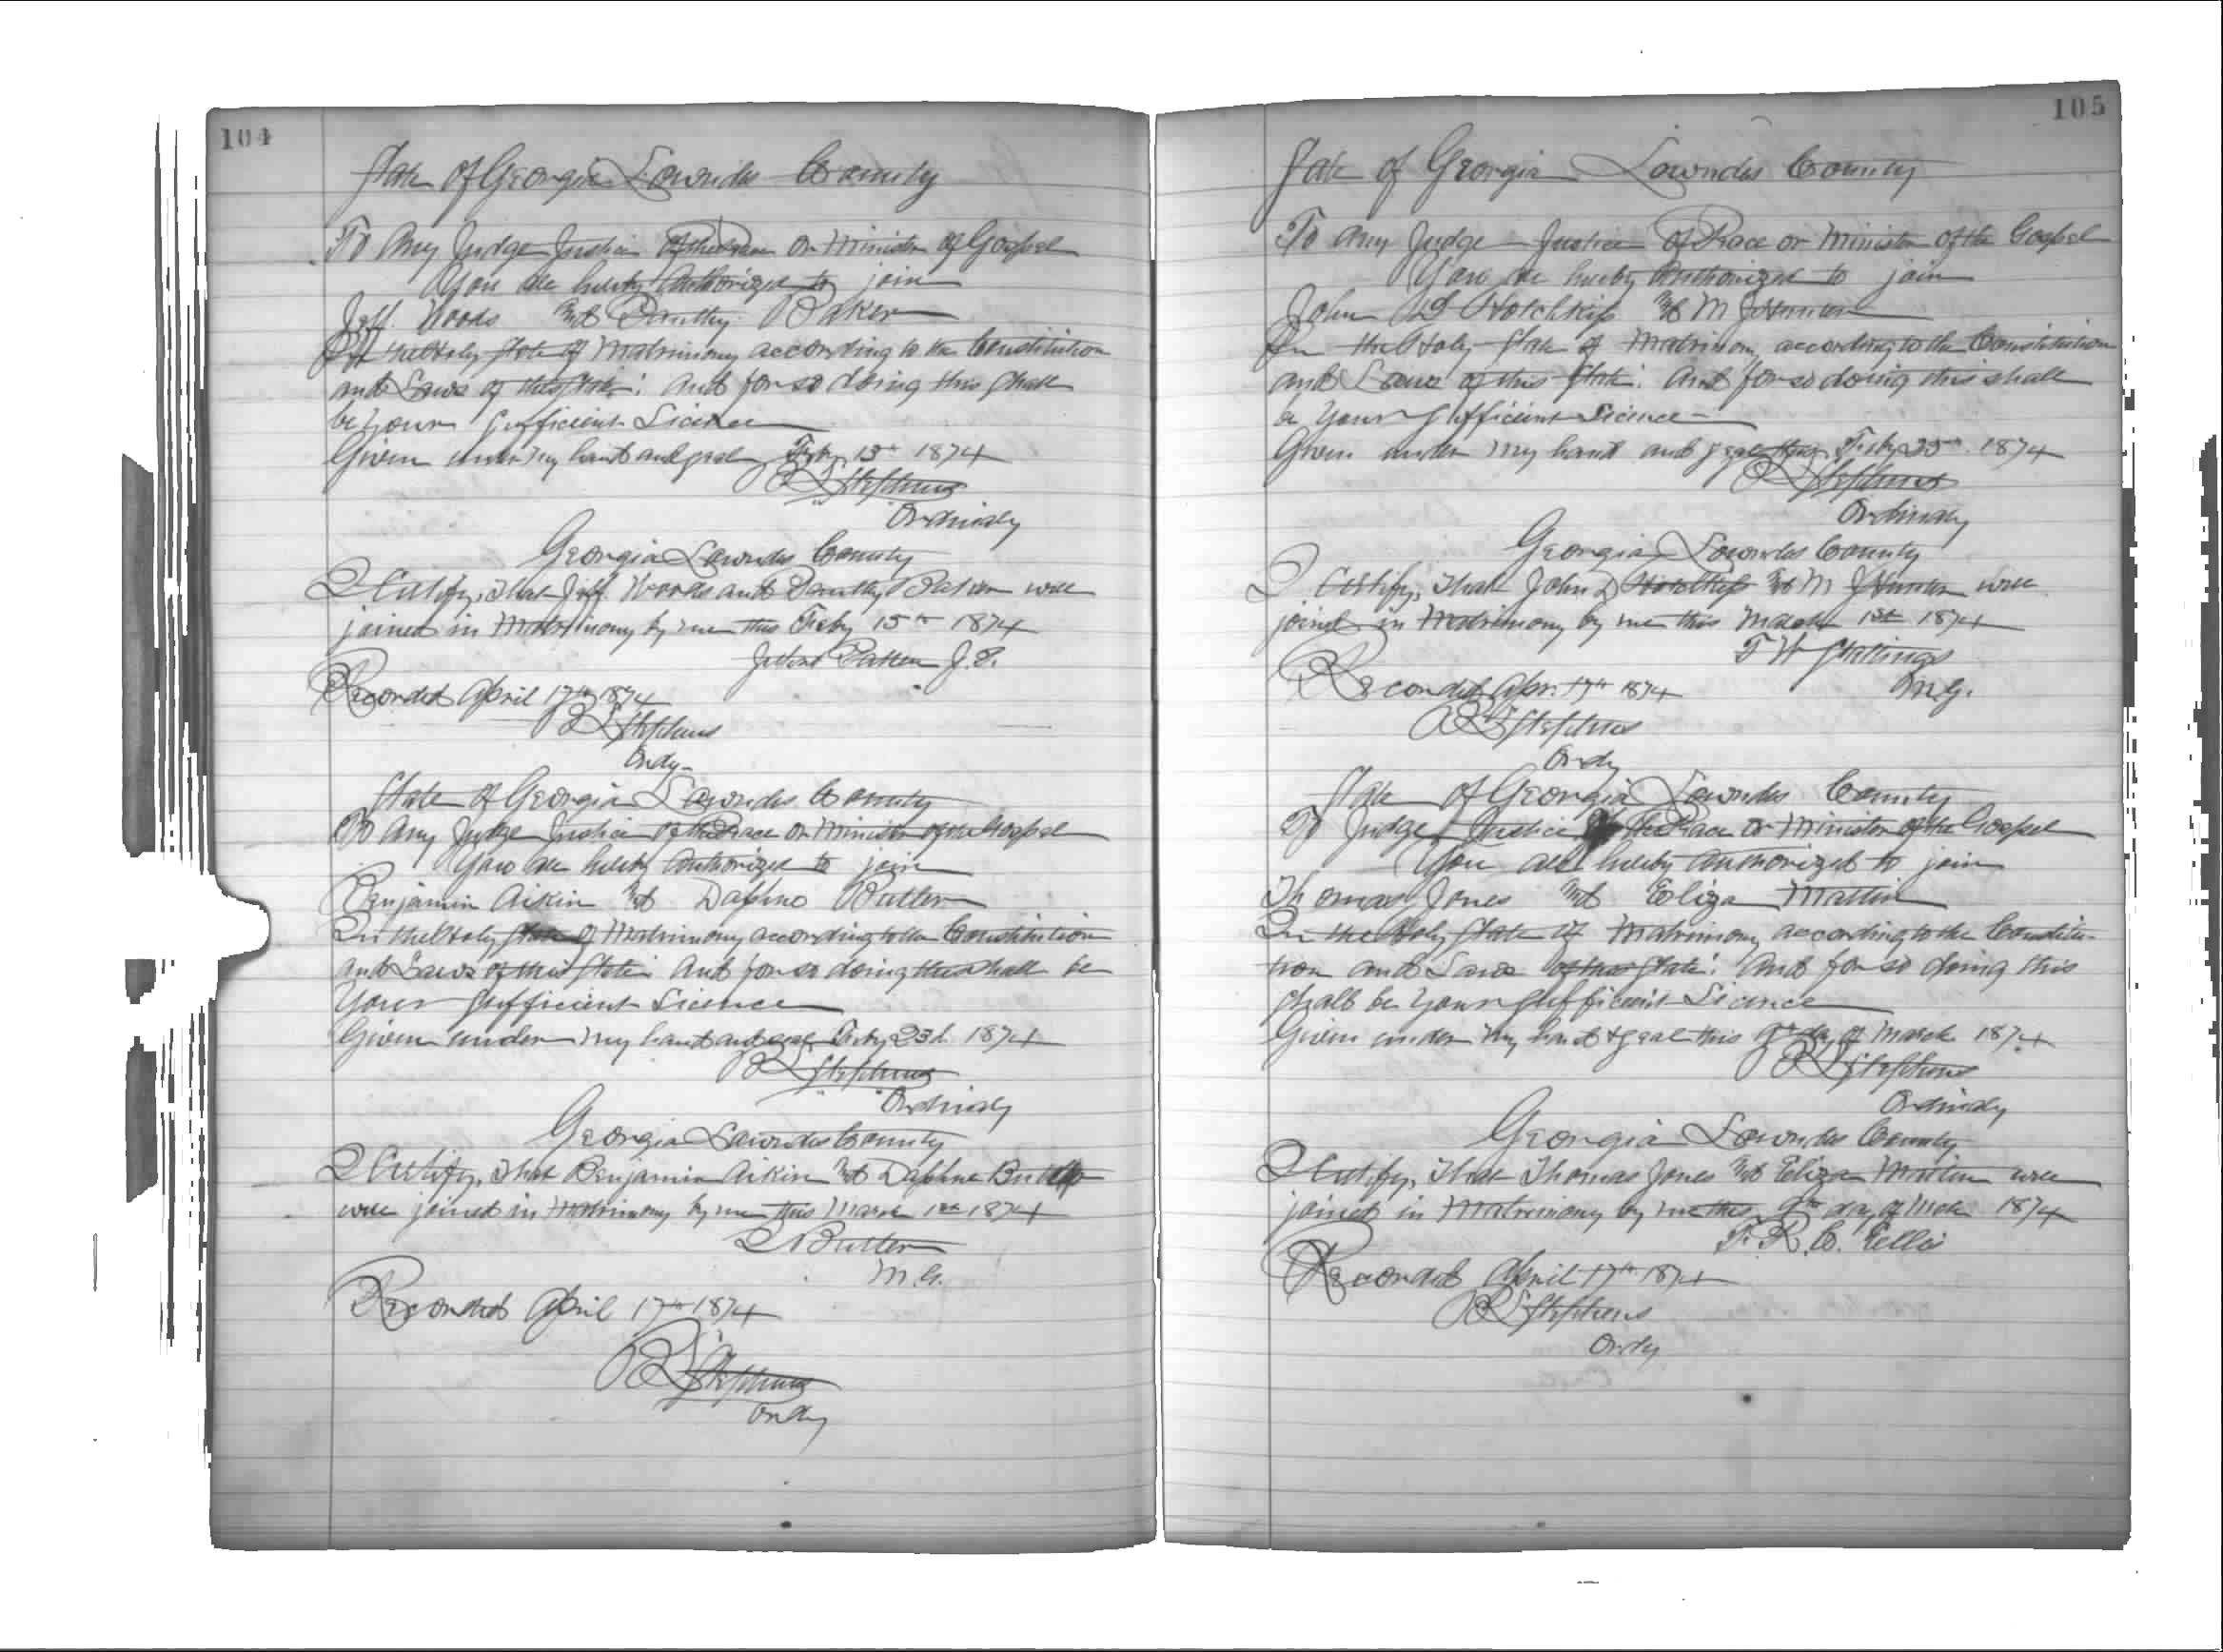 104
State of Georgia Lowndes County
To Any Judge Justice of the Peace or Minister of Gospel
You are hereby Authorized to join
Jeff. Woods and Baker
In the Holy State of Matrimony according to the Constitution
and Laws of this State: And for so doing this shall
be your Sufficient Licence
Given under my hand and seal Feby 13th 1874
Stephens
Ordinary
Georgia Lowndes County
I Certify, That Jeff. Woods and Baker were
joined in Matrimony by me this Feby 15th 1874
Patten J.P.
Recorded April 17th 1874
Stephens
Ordy
State of Georgia Lowndes County
To Any Judge Justice of the Peace or Minister of the Gospel
You are hereby Authorized to join
Benjamin Aikin and Daphne Butler
In the Holy State of Matrimony according to the Constitution
and Laws of this State: And for so doing this shall be
Your Sufficient Licence
Given under my hand and seal Feby 23d 1874
Stephens
Ordinary
Georgia Lowndes County
I Certify, That Benjamin Aikin and Daphne Butler
were joined in Matrimony by me this March 1st 1874
Butler
M.G.
Recorded April 17th 1874
Stephens
Ordy
105
State of Georgia Lowndes County
To Any Judge Justice of Peace or Minister of the Gospel
You are hereby Authorized to join
John D Hotchkiss and M J
In the Holy State of Matrimony according to the Constitution
and Laws of this State: And for so doing this shall
be Your Sufficient Licence
Given under my hand and seal this Feby 25th 1874
Stephens
Ordinary
Georgia Lowndes County
I Certify, That John D Hotchkiss and M J were
joined in Matrimony by me this March 1st 1874
T W Stallings
M.G.
Recorded Apr. 17th 1874
Stephens
Ordy
State of Georgia Lowndes County
To Judge Justice of the Peace or Minister of the Gospel
You are hereby Authorized to join
Thomas Jones and Eliza Martin
In the Holy State of Matrimony according to the Constitu-
tion and Laws of this State: And for so doing this
shall be Your Sufficient Licence
Given under my hand & seal this 9th day of March 1874
Stephens
Ordinary
Georgia Lowndes County
I Certify, That Thomas Jones and Eliza Martin were
joined in Matrimony by me this 9th day of Mch 1874
F. R. C. Ellis
Recorded April 17th 1874
Stephens
Ordy